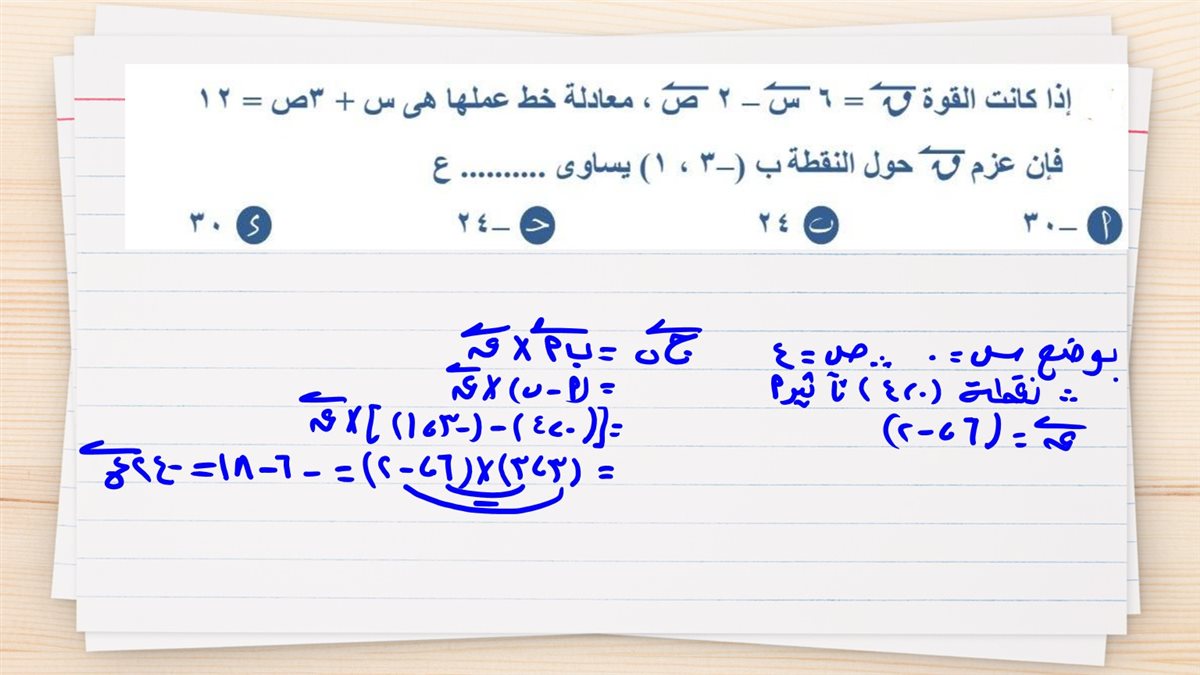 إذا كانت القوة ق = ٦ س – ٢ ص ، معادلة خط عملها هى س + ٣ص = ١٢
فإن عزم ق حول النقطة ب (–٣ ، ١) يساوى .......... ع
أ –٣٠ ب ٢٤ ح –٢٤ د ٣٠
بوضع س = ٠ ∴ ص = ٤
∴ نقطة (٠، ٤) تأثير أ
ق = (٦، -٢)
ج ب = ب أ × ق
= (أ - ب) × ق
= [(٠، ٤) - (-٣، ١)] × ق
= (٣، ٣) × (٦، -٢) = -٦ - ١٨ = -٢٤ ع